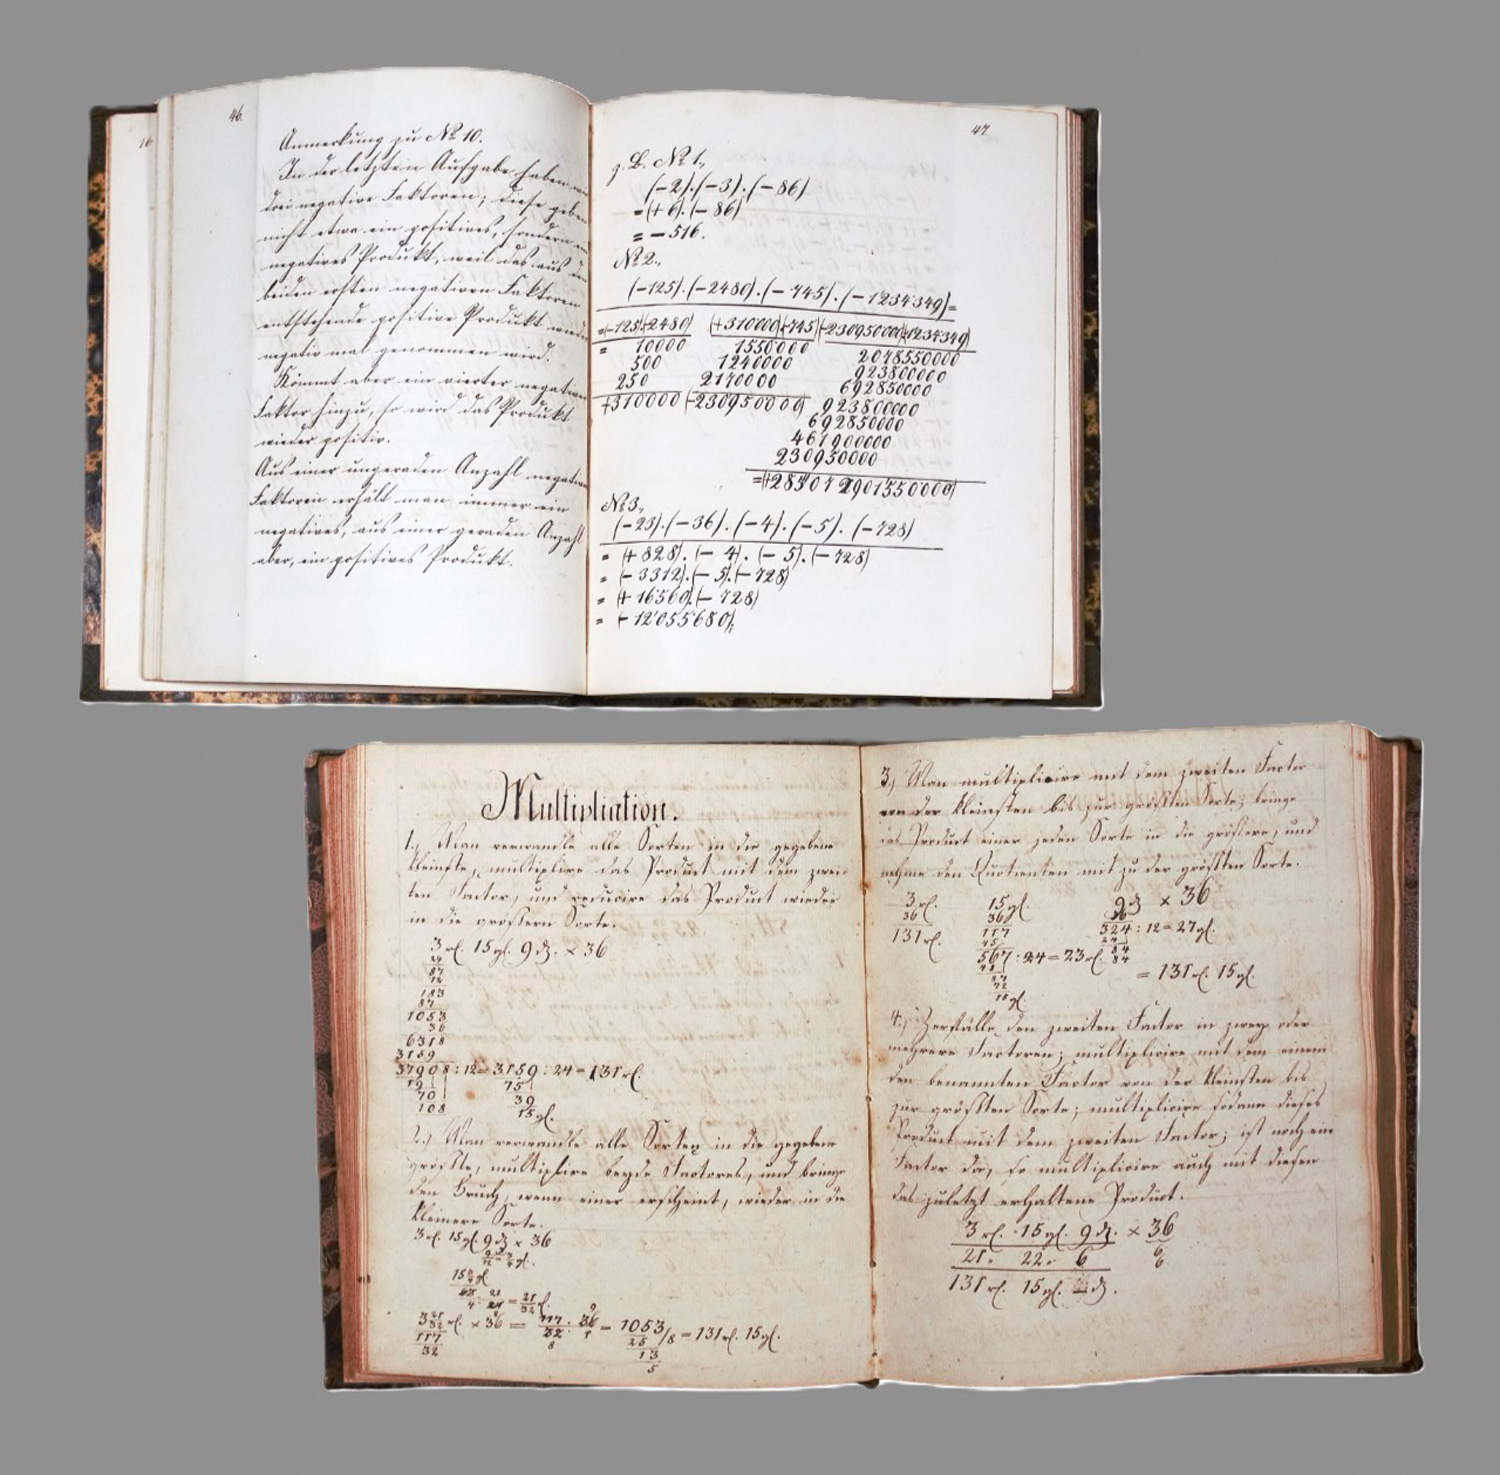 16
46.
Anmerkung zu No 10.
In der letzten Aufgabe haben wir
drei negative Faktoren; diese geben
nicht etwa ein positives, sondern ein
negatives Produkt, weil das aus den
beiden ersten negativen Faktoren
entstehende positive Produkt wieder
negativ mal genommen wird.
Kömmt aber ein vierter negativer
Faktor hinzu, so wird das Produkt
wieder positiv.
Aus einer ungeraden Anzahl negativer
Faktoren erhält man immer ein
negatives, aus einer geraden Anzahl
aber, ein positives Produkt.
47.
z. B. No 1.,
(-2).(-3).(-86)
=(+6).(-86)
= -516.
No 2.,
(-125).(-2480).(-745).(-1234349)=
=(-125)(-2480) (+310000)(-745) (-230950000)(-1234349)
= 10000 1550000 2078550000
500 1240000 923800000
250 2170000 692850000
+310000 (-230950000) 923800000
692850000
461900000
230950000
No 3.,
(-23).(-36).(-4).(-5).(-728)
= (+828).(-4).(-5).(-728)
= (-3312).(-5).(-728)
= (+16560).(-728)
= (-12'055'680).,
Multiplication.
1., Man verwandle alle Sorten in die gegebene
kleinste, multiplicire das Product mit dem zwei-
ten Factor, und reducire das Product wieder
in die größern Sorte.
3 rl. 15 gl. 9 d. × 36
24
87
12
183
87
1053
36
6318
3159
37908 : 12 = 3159 : 24 = 131 rl.
19 75
70 39
108 15 gl.
2., Man verwandle alle Sorten in die gegebene
größte, multiplicire beyde Factores, und bringe
den Bruch, wenn einer erscheint, wieder in die
kleinere Sorte.
3 rl. 15 gl. 9 d × 36
9/12 = 3/4 gl.
15 3/4 gl.
63
= 21/32 rl.
3 21/32 rl. × 36 = 117/32 . 36 = 1053/8 = 131 rl. 15 gl.
117 8 25
32 13
5
3., Man multiplicire mit dem zweiten Factor
von der kleinsten bis zur größten Sorte; bringe
das Product einer jeden Sorte in die größere, und
nehme den Quotienten mit zu der größten Sorte.
3 rl. 15 gl. 9 d × 36
36 36 36
131 rl. 117 324 : 12 = 27 gl.
45 24
567 : 24 = 23 rl. 84
48 84
87 = 131 rl. 15 gl.
72
15 gl.
4., Zerfälle den zweiten Factor in zwey oder
mehrere Factoren; multiplicire mit dem einem
den benannten Factor von der kleinsten bis
zur größten Sorte; multiplicire sodann dieses
Product mit dem zweiten Factor; ist noch ein
Factor da, so multiplicire auch mit diesem
das zuletzt erhaltene Product.
3 rl. 15 gl. 9 d. × 36
21. 22. 6 6
131 rl. 15 gl. d. 6